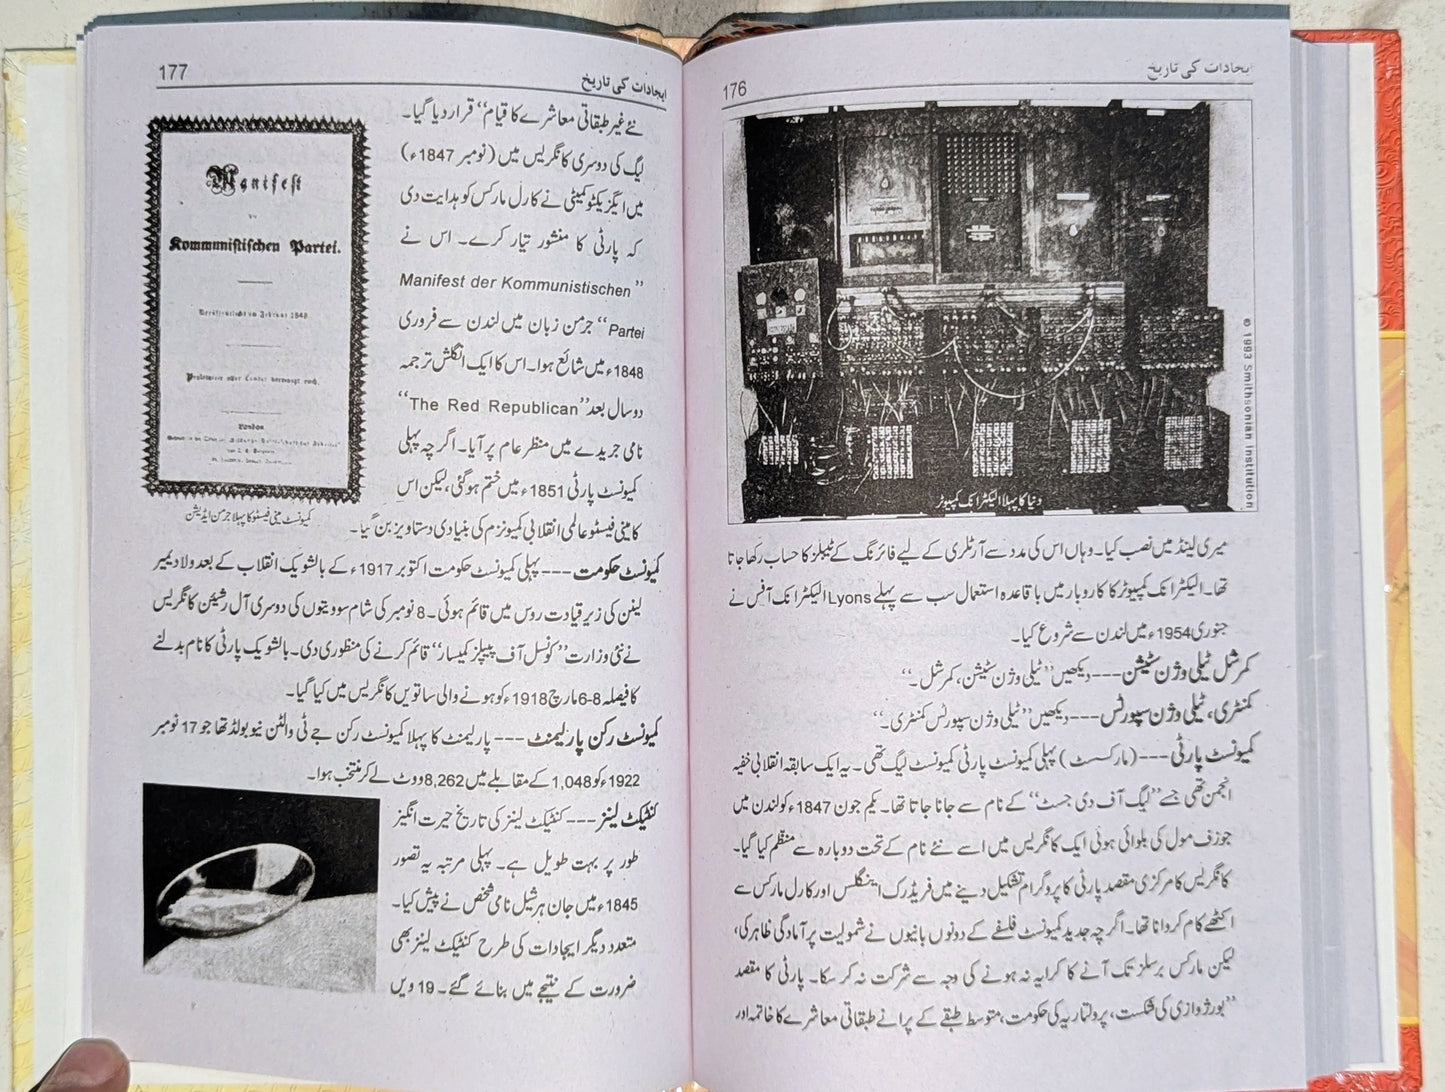 ایجادات کی تاریخ
176
© 1993 Smithsonian Institution
دنیا کا پہلا الیکٹرانک کمپیوٹر
میری لینڈ میں نصب کیا۔ وہاں اس کی مدد سے آرٹلری کے لیے فائرنگ کے ٹیبلز کا حساب رکھا جاتا
تھا۔ الیکٹرانک کمپیوٹر کا کاروبار میں باقاعدہ استعمال سب سے پہلے Lyons الیکٹرانک آفس نے
جنوری 1954ء میں لندن سے شروع کیا۔
کمرشل ٹیلی وژن سٹیشن --- دیکھیں ”ٹیلی وژن سٹیشن، کمرشل۔“
کمنٹری، ٹیلی وژن سپورٹس --- دیکھیں ”ٹیلی وژن سپورٹس کمنٹری۔“
کمیونسٹ پارٹی --- (مارکسسٹ) پہلی کمیونسٹ پارٹی کمیونسٹ لیگ تھی۔ یہ ایک سابقہ انقلابی خفیہ
انجمن تھی جسے ”لیگ آف دی جسٹ“ کے نام سے جانا جاتا تھا۔ یکم جون 1847ء کو لندن میں
جوزف مول کی بلوائی ہوئی ایک کانگریس میں اسے نئے نام کے تحت دوبارہ سے منظم کیا گیا۔
کانگریس کا مرکزی مقصد پارٹی کا پروگرام تشکیل دینے میں فریڈرک اینگلس اور کارل مارکس سے
اکٹھے کام کروانا تھا۔ اگرچہ جدید کمیونسٹ فلسفے کے دونوں بانیوں نے شمولیت پر آمادگی ظاہر کی،
لیکن مارکس برسلز تک آنے کا کرایہ نہ ہونے کی وجہ سے شرکت نہ کر سکا۔ پارٹی کا مقصد
”بورژوازی کی شکست، پرولتاریہ کی حکومت، متوسط طبقے کے پرانے طبقاتی معاشرے کا خاتمہ اور
ایجادات کی تاریخ
177
نئے غیر طبقاتی معاشرے کا قیام“ قرار دیا گیا۔
لیگ کی دوسری کانگریس میں (نومبر 1847ء)
میں ایگزیکٹو کمیٹی نے کارل مارکس کو ہدایت دی
کہ پارٹی کا منشور تیار کرے۔ اس نے
”Manifest der Kommunistischen
Partei“ جرمن زبان میں لندن سے فروری
1848ء میں شائع ہوا۔ اس کا ایک انگلش ترجمہ
دو سال بعد ”The Red Republican“
نامی جریدے میں منظر عام پر آیا۔ اگرچہ پہلی
کمیونسٹ پارٹی 1851ء میں ختم ہو گئی، لیکن اس
کا مینی فیسٹو عالمی انقلابی کمیونزم کی بنیادی دستاویز بن گیا۔
Manifest
Kommunistischen Partei.
Veröffentlicht im Februar 1848
Proletarier aller Länder vereinigt euch.
London
کمیونسٹ مینی فیسٹو کا پہلا جرمن ایڈیشن
کمیونسٹ حکومت --- پہلی کمیونسٹ حکومت اکتوبر 1917ء کے بالشویک انقلاب کے بعد ولادیمیر
لینن کی زیر قیادت روس میں قائم ہوئی۔ 8 نومبر کی شام سوویتوں کی دوسری آل رشین کانگریس
نے نئی وزارت ”کونسل آف پیپلز کمیسار“ قائم کرنے کی منظوری دی۔ بالشویک پارٹی کا نام بدلنے
کا فیصلہ 6-8 مارچ 1918ء کو ہونے والی ساتویں کانگریس میں کیا گیا۔
کمیونسٹ رکن پارلیمنٹ --- پارلیمنٹ کا پہلا کمیونسٹ رکن جے ٹی والٹن نیوبولڈ تھا جو 17 نومبر
1922ء کو 1,048 کے مقابلے میں 8,262 ووٹ لے کر منتخب ہوا۔
کنٹیکٹ لینز --- کنٹیکٹ لینز کی تاریخ حیرت انگیز
طور پر بہت طویل ہے۔ پہلی مرتبہ یہ تصور
1845ء میں جان ہرشیل نامی شخص نے پیش کیا۔
متعدد دیگر ایجادات کی طرح کنٹیکٹ لینز بھی
ضرورت کے نتیجے میں بنائے گئے۔ 19 ویں